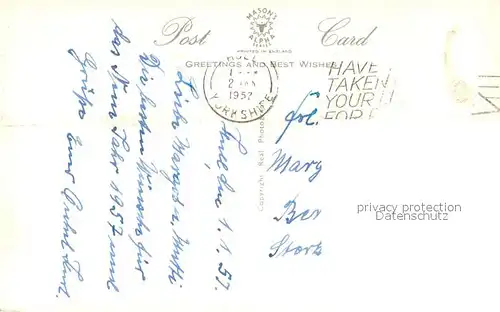 Post Card
MASON'S
ALPHA
SERIES
PRINTED IN ENGLAND
GREETINGS AND BEST WISHES
HULL
1957
YORKSHIRE
HAVE
TAKEN
YOUR
FOR
Copyright Real Photo
Hull den 1.1.57.
Liebe Margot u. Mutti
Die besten Wünsche für
das Neue Jahr 1957 und
Grüße Euer Onkel Kurt.
Frl.
Marg
Ber
Stork
privacy protection
Datenschutz